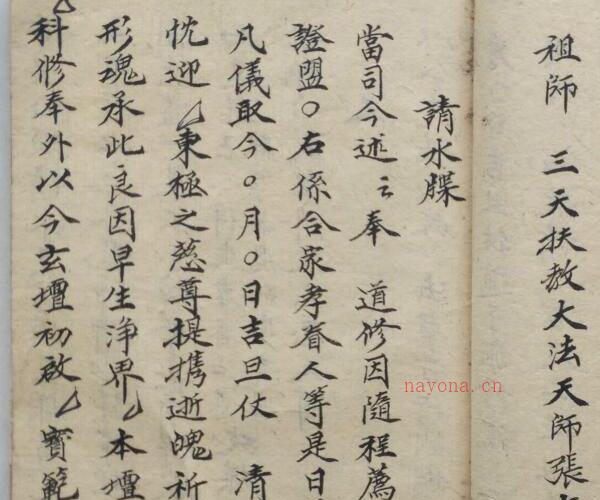 祖師 三天扶教大法天師張
請水牒
當司今述〻奉 道修因隨程薦
證盟〇右係合家孝眷人等是日
凡儀取今〇月〇日吉旦仗 清
忱迎 東極之慈尊提携逝魄祈
形魂承此良因早生淨界 本壇
科修奉外以今玄壇初啟 寳範
nayona.cn